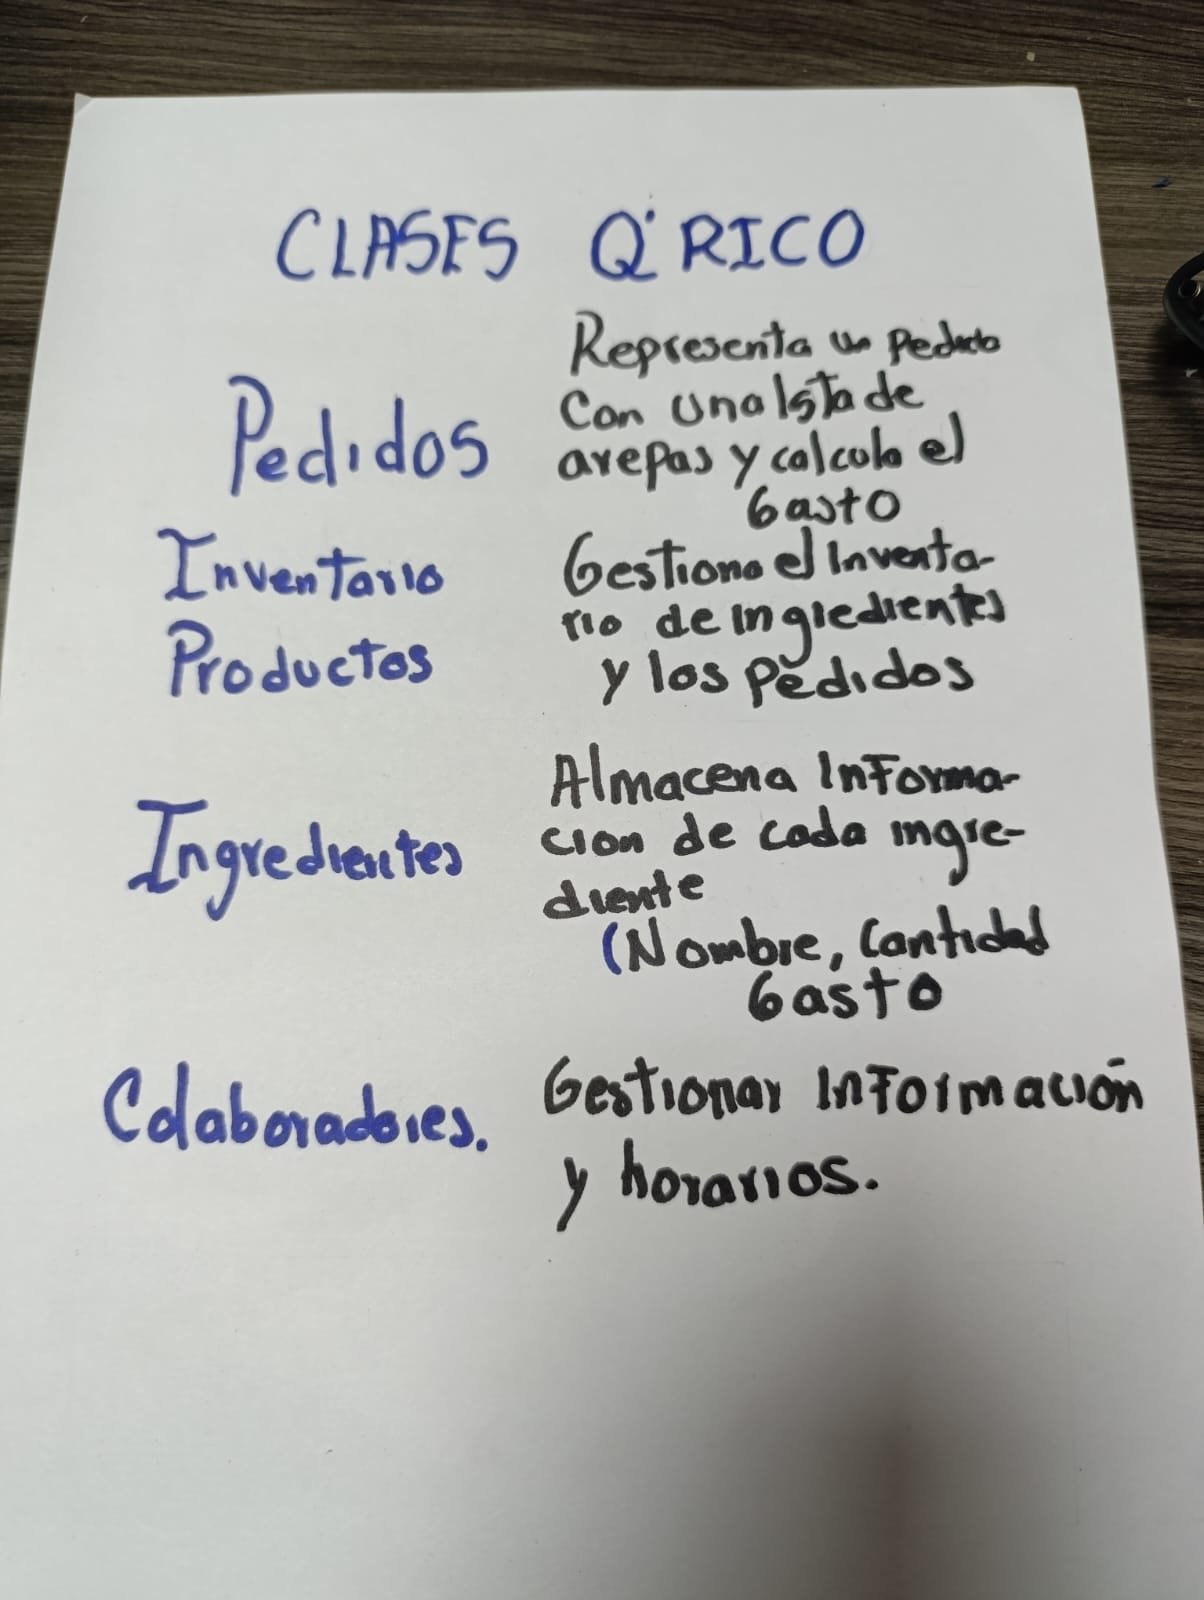 CLASES Q'RICO
Pedidos
Representa un pedido
Con una lista de
arepas y calcula el
Gasto
Inventario
Productos
Gestiona el Inventa-
rio de ingredientes
y los pedidos
Ingredientes
Almacena Informa-
cion de cada ingre-
diente
(Nombre, Cantidad
Gasto
Colaboradores.
Gestionar Información
y horarios.